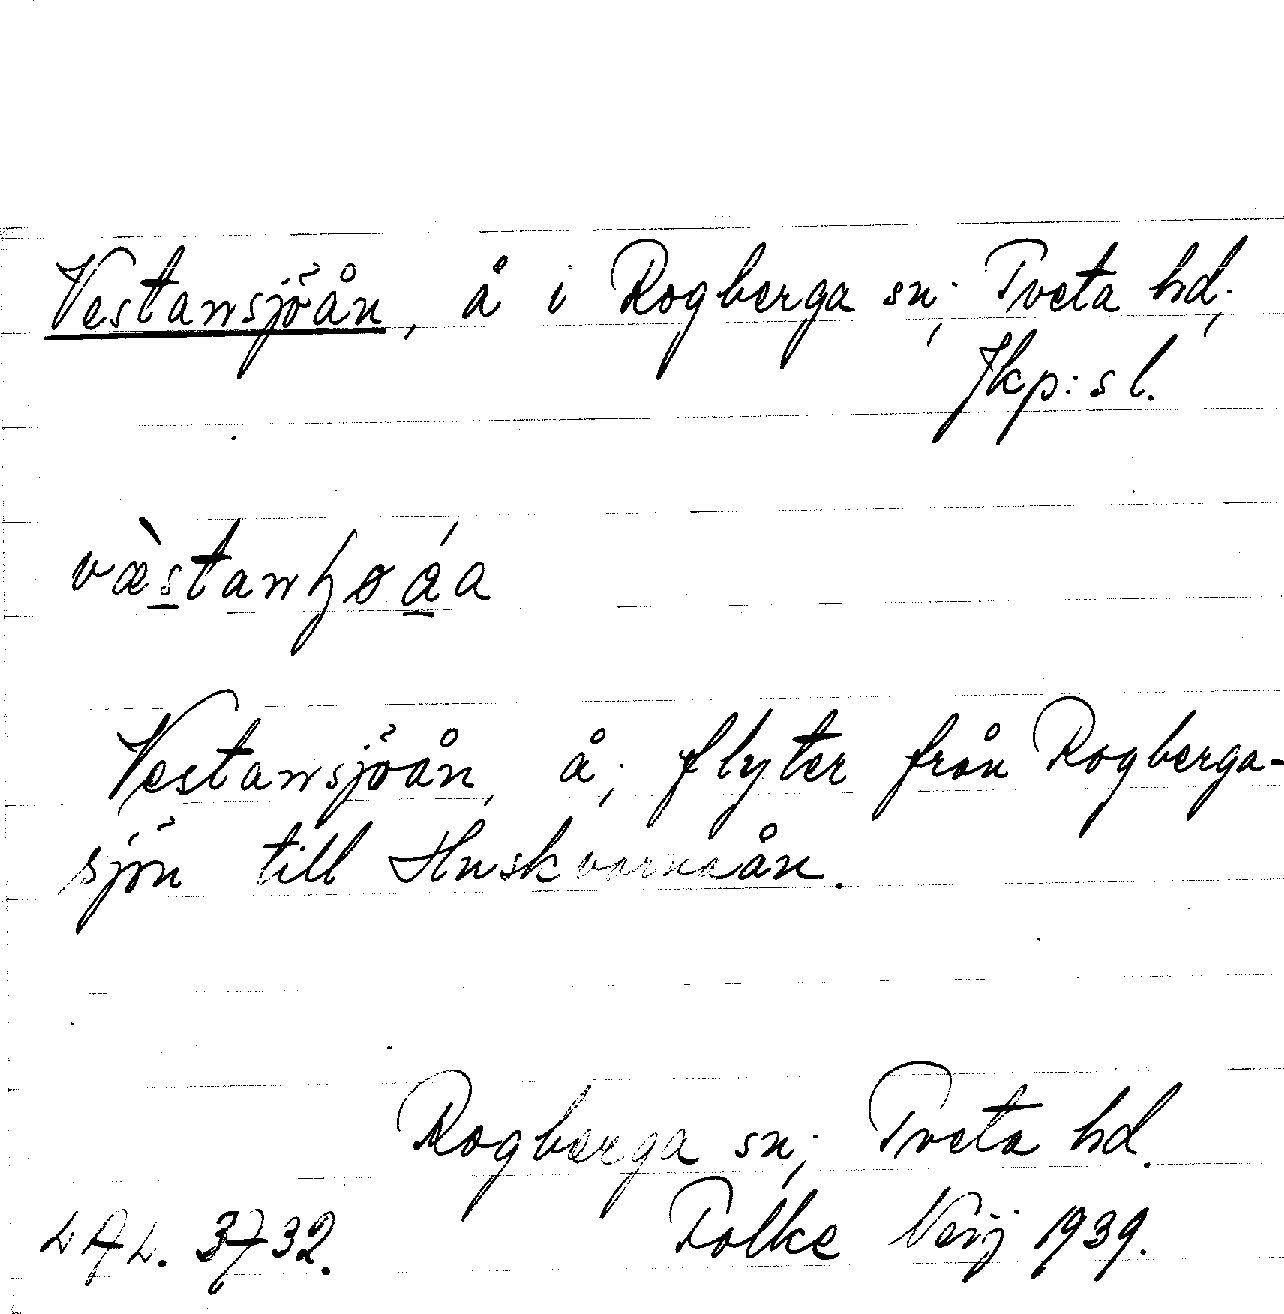 Vestansjöån, å i Rogberga sn; Tveta hd;
Jkp:s l.
væ̀stanɧøáa
Vestansjöån, å; flyter från Rogberga-
sjön till Huskvarnaån.
Rogberga sn; Tveta hd.
LAL. 3732. Folke Neij 1939.